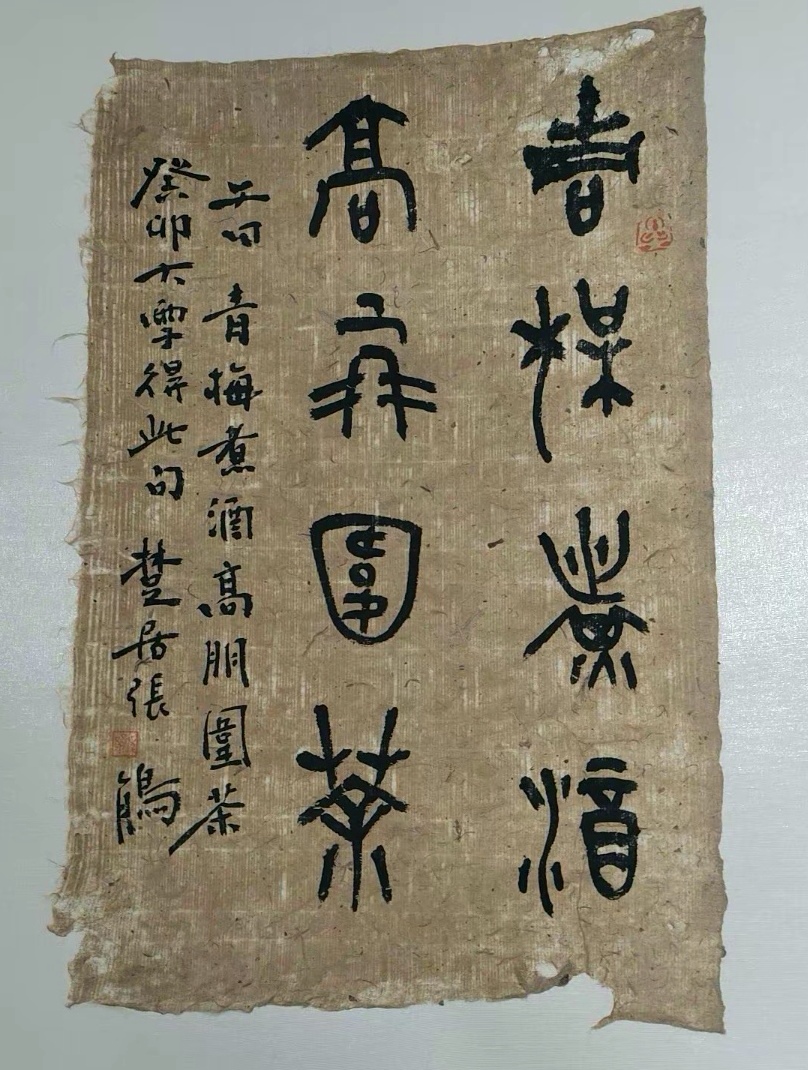 青梅煮酒
高朋圍茶
子曰 青梅煮酒高朋圍茶
癸卯大雪得此句 楚居張